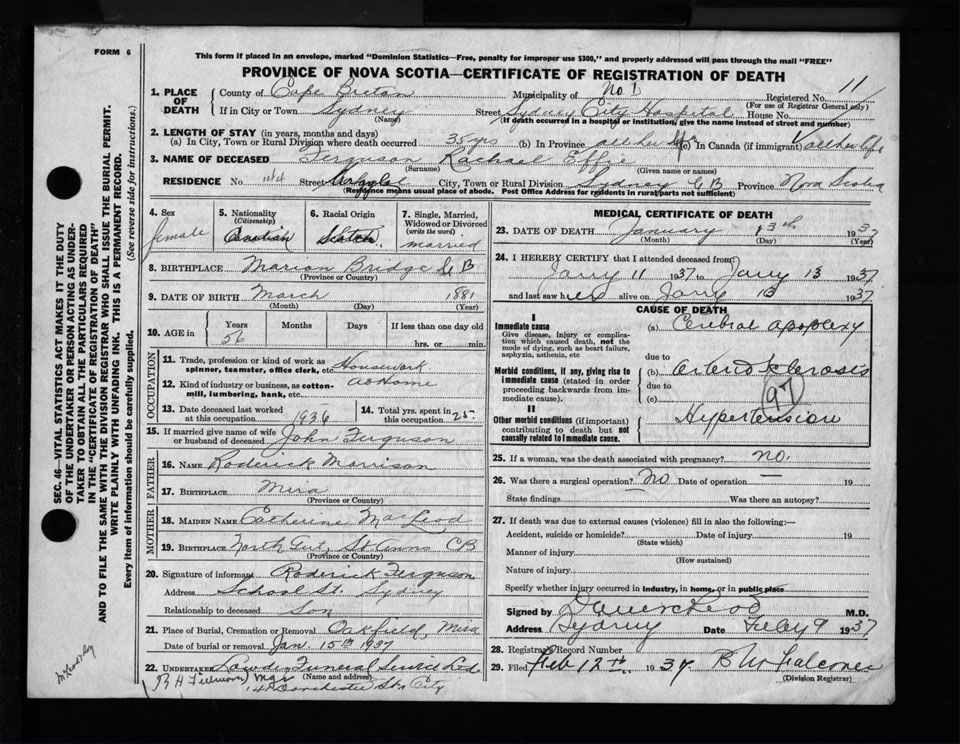 FORM 6
This form if placed in an envelope, marked "Dominion Statistics—Free, penalty for improper use $300," and properly addressed will pass through the mail "FREE"
PROVINCE OF NOVA SCOTIA—CERTIFICATE OF REGISTRATION OF DEATH
SEC. 46—VITAL STATISTICS ACT MAKES IT THE DUTY
OF THE UNDERTAKER OR PERSON ACTING AS UNDER-
TAKER TO OBTAIN ALL THE PARTICULARS REQUIRED
IN THE "CERTIFICATE OF REGISTRATION OF DEATH"
AND TO FILE THE SAME WITH THE DIVISION REGISTRAR WHO SHALL ISSUE THE BURIAL PERMIT.
WRITE PLAINLY WITH UNFADING INK. THIS IS A PERMANENT RECORD.
Every item of information should be carefully supplied. (See reverse side for instructions.)
1. PLACE OF DEATH County of Cape Breton Municipality of No 1 Registered No. 11
(For use of Registrar General only)
If in City or Town Sydney Street Sydney City Hospital House No.
(Name) (If death occurred in a hospital or institution, give the name instead of street and number)
2. LENGTH OF STAY (in years, months and days)
(a) In City, Town or Rural Division where death occurred 35 yrs (b) In Province all her life (c) In Canada (if immigrant) all her life
3. NAME OF DECEASED Ferguson Rachael Effie
(Surname) (Given name or names)
RESIDENCE No 44 Street City, Town or Rural Division Sydney C B Province Nova Scotia
(Residence means usual place of abode. Post Office Address for residents in rural parts not sufficient)
4. Sex female
5. Nationality (Citizenship) Canadian
6. Racial Origin Scotch
7. Single, Married, Widowed or Divorced (write the word) married
8. BIRTHPLACE Marion Bridge C B
(Province or Country)
9. DATE OF BIRTH March 1881
(Month) (Day) (Year)
10. AGE in Years 56 Months Days If less than one day old hrs. or min.
OCCUPATION
11. Trade, profession or kind of work as spinner, teamster, office clerk, etc. Housework
12. Kind of industry or business, as cotton-mill, lumbering, bank, etc. at Home
13. Date deceased last worked at this occupation 1936 14. Total yrs. spent in this occupation 25
15. If married give name of wife or husband of deceased John Ferguson
FATHER
16. NAME Roderick Morrison
17. BIRTHPLACE Mira
(Province or Country)
MOTHER
18. MAIDEN NAME Catherine MacLeod
19. BIRTHPLACE North Gut, St. Anns CB
(Province or Country)
20. Signature of informant Roderick Ferguson
Address School St. Sydney
Relationship to deceased Son
21. Place of Burial, Cremation or Removal Oakfield, Mira
Date of burial or removal Jan. 15th 1937
22. UNDERTAKER Funeral Service Ltd
(Name and address)
Mgr Dorchester St. City
MEDICAL CERTIFICATE OF DEATH
23. DATE OF DEATH January 13th 1937
(Month) (Day) (Year)
24. I HEREBY CERTIFY that I attended deceased from:
Janry 11 1937 to Janry 13 1937
and last saw her alive on Janry 13 1937
CAUSE OF DEATH
I
Immediate cause
Give disease, injury or complication which caused death, not the mode of dying, such as heart failure, asphyxia, asthenia, etc
(a) Cerebral apoplexy
due to
Morbid conditions, if any, giving rise to immediate cause (stated in order proceeding backwards from immediate cause).
(b) Arteriosclerosis
due to 97
(c)
II
Other morbid conditions (if important) contributing to death but not causally related to immediate cause.
Hypertension
25. If a woman, was the death associated with pregnancy? no.
26. Was there a surgical operation? No Date of operation — 19
State findings Was there an autopsy?
27. If death was due to external causes (violence) fill in also the following:—
Accident, suicide or homicide? Date of injury 19
(State which)
Manner of injury
(How sustained)
Nature of injury
Specify whether injury occurred in industry, in home, or in public place
Signed by M.D.
Address Sydney Date Feby 9 1937
28. Registration Record Number
29. Filed Feb 12th 1937
(Division Registrar)